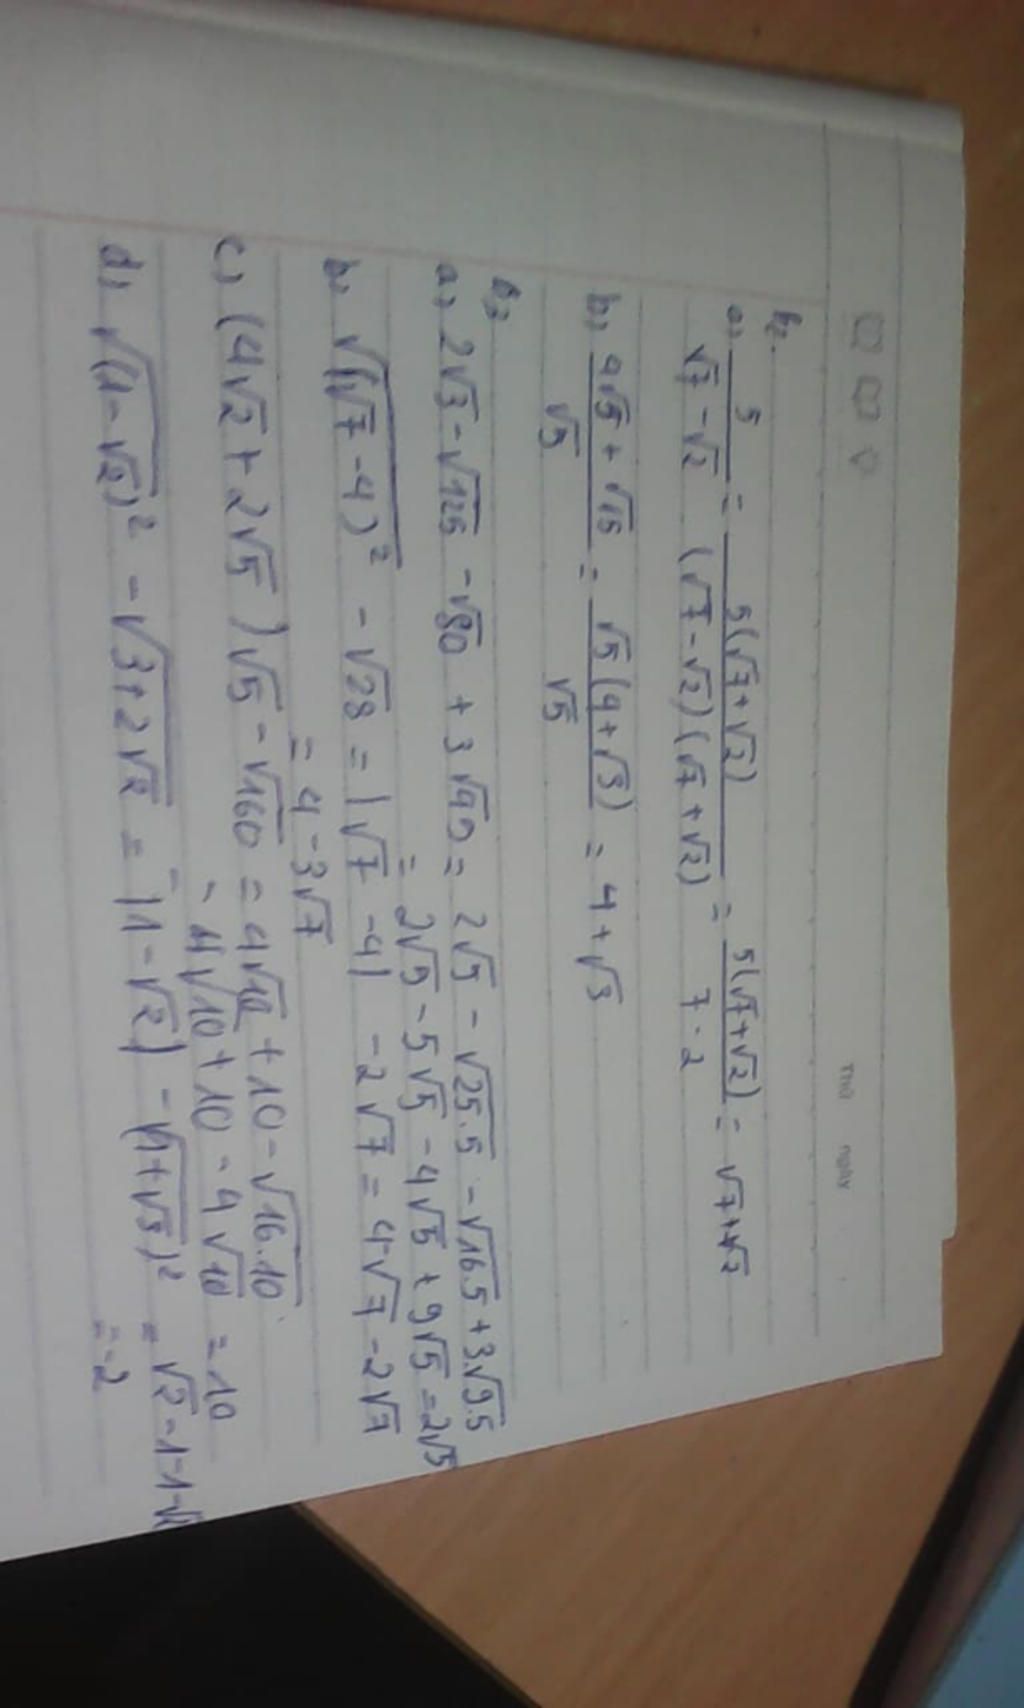 Thứ ngày
B2.
a) 5/(√7 - √2) = 5(√7+√2)/((√7 - √2)(√7 + √2)) = 5(√7+√2)/(7 - 2) = √7+√2
b) (4√5 + √15)/√5 = √5(4+√3)/√5 = 4+√3
B3
a) 2√5 - √125 - √80 + 3√45 = 2√5 - √25.5 - √16.5 + 3.√9.5
= 2√5 - 5√5 - 4√5 + 9√5 = 2√5
b) √(√7 - 4)² - √28 = |√7 - 4| - 2√7 = 4-√7 - 2√7
= 4 - 3√7
c) (4√2 + 2√5)√5 - √160 = 4√10 + 10 - √16.10
= 4√10 + 10 - 4√10 = 10
d) √(1 - √2)² - √3+2√2 = |1 - √2| - √(1+√2)² = √2 - 1 - 1 - √2
= -2